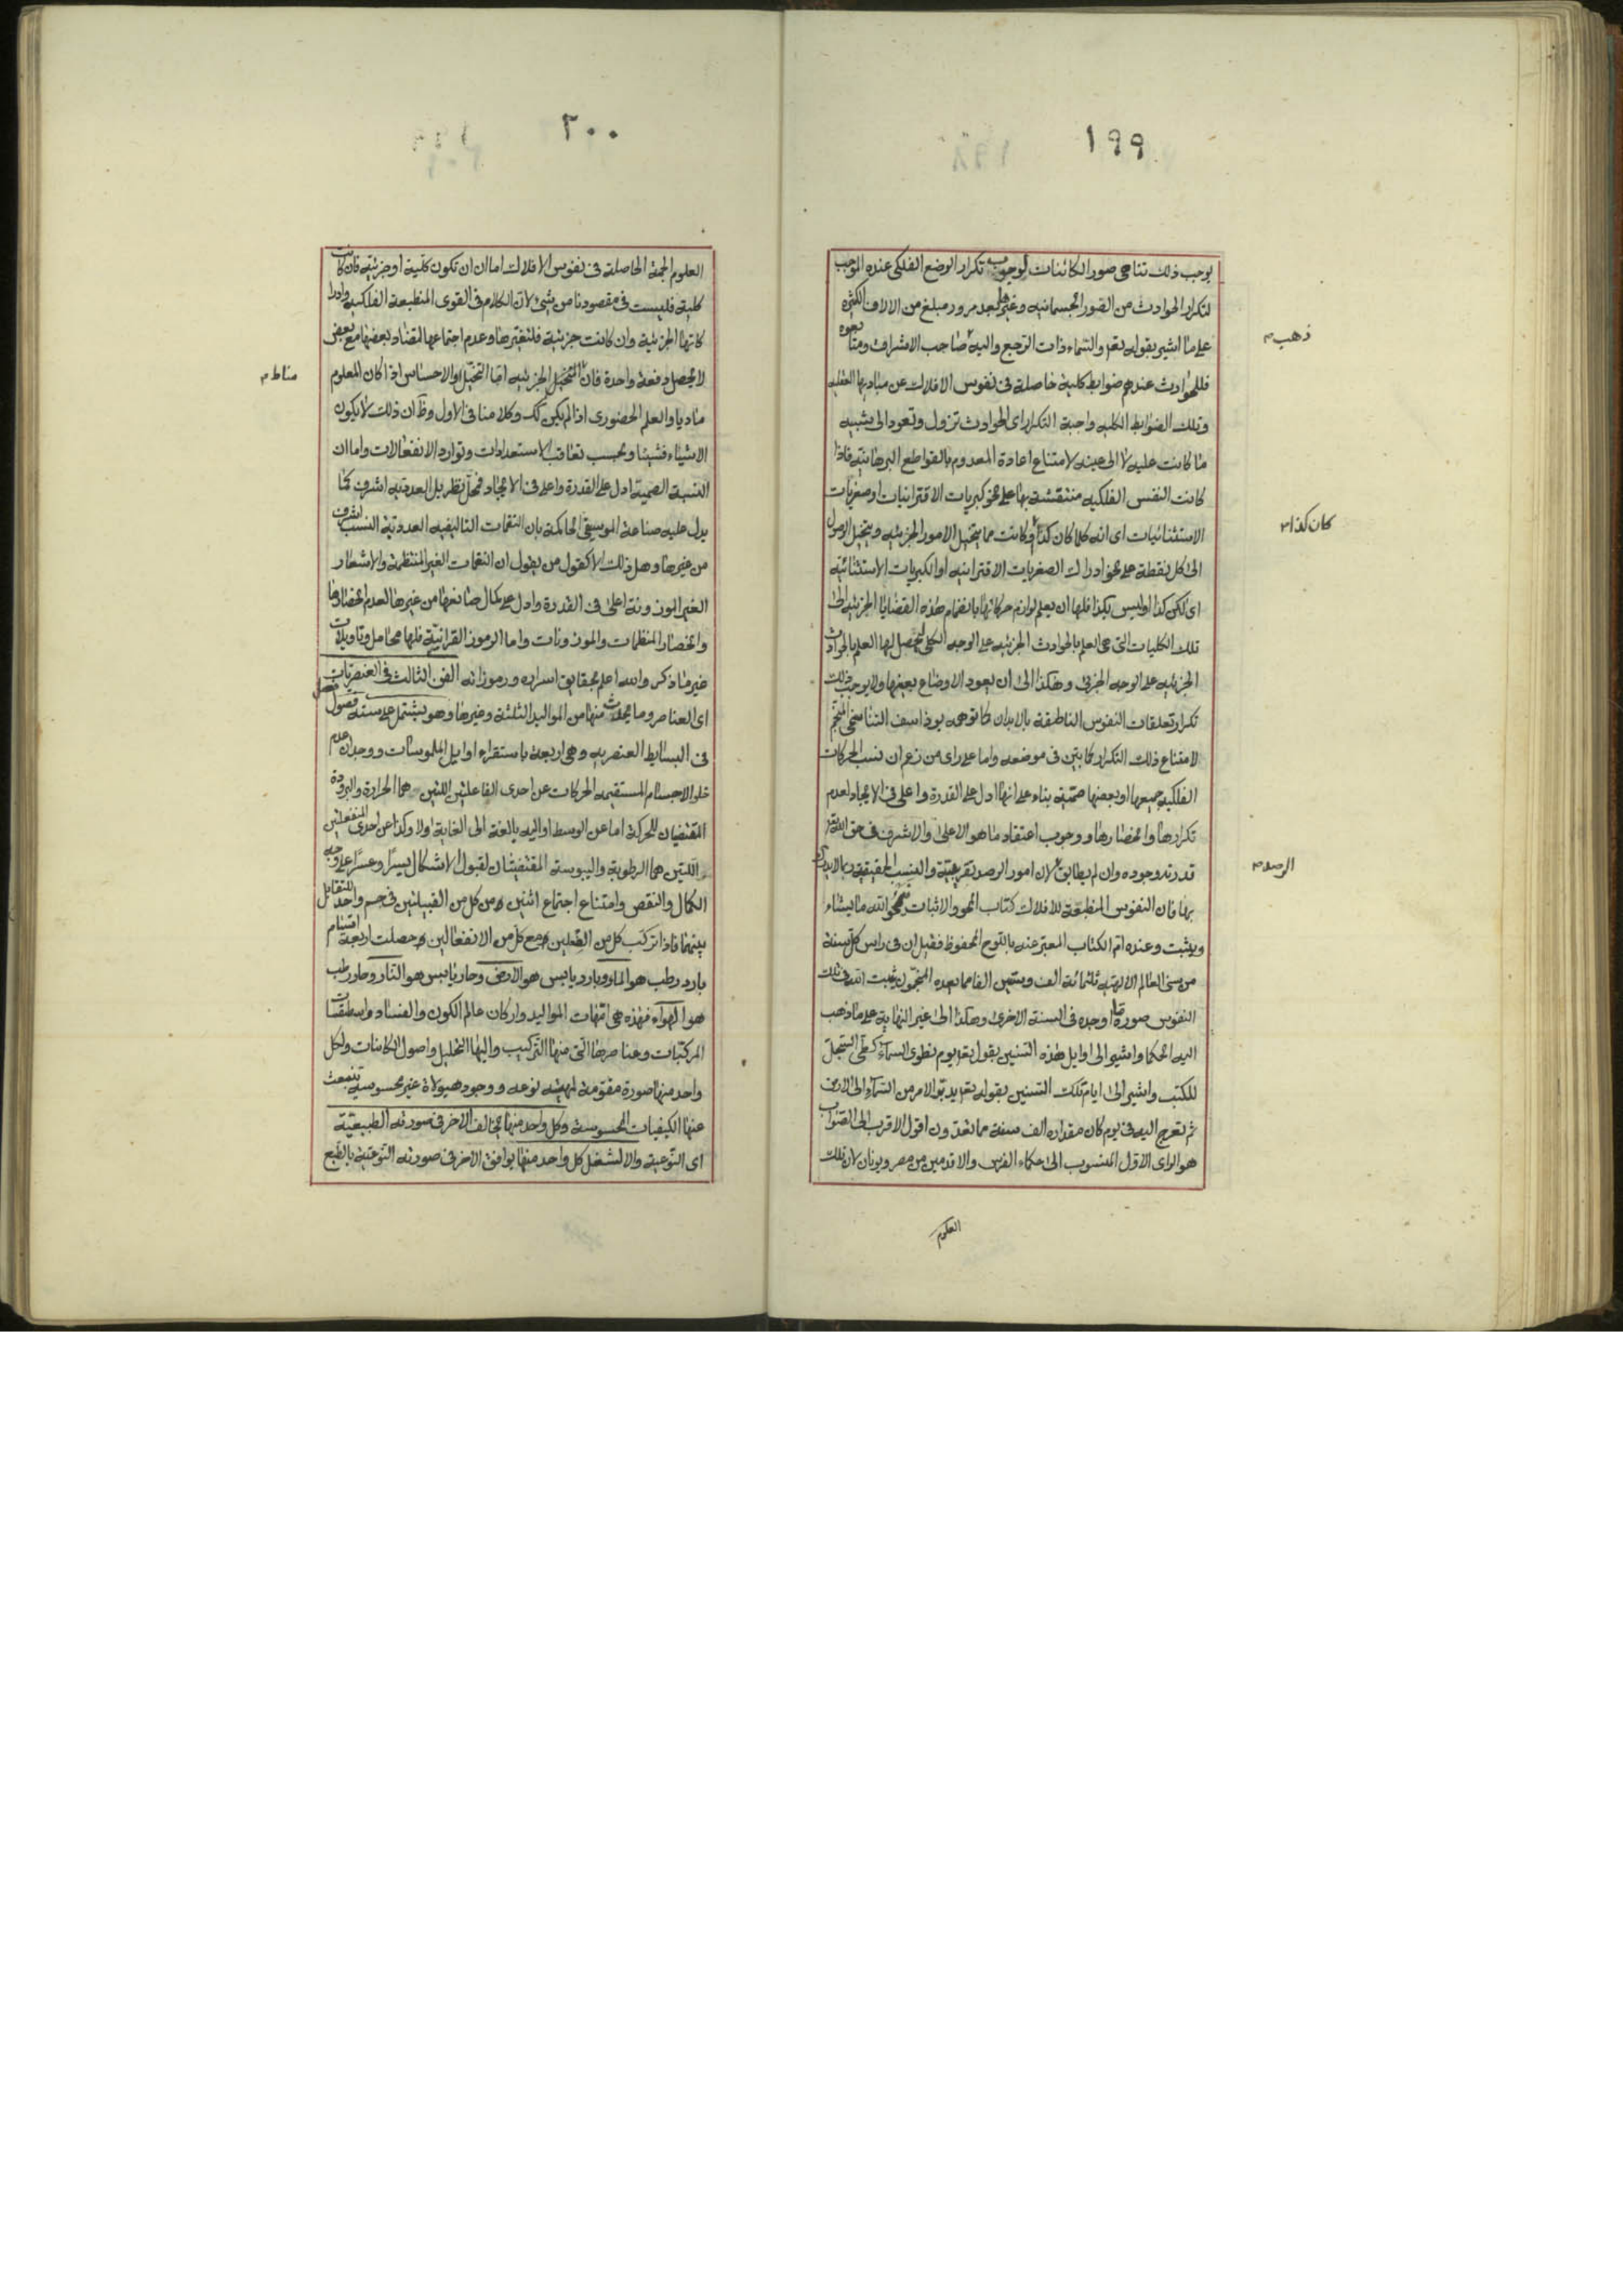 ١٩٩
يوجب ذلك تناهى صور الكائنات لوجوب تكرار الوضع الفلكى عنده الموجب
لتكرار الحوادث من الصور الجسمانيه وغيرها بعد مرور مبلغ من الالاف الكثيره
على ما اشير بقوله تعم والسماء ذات الرجع واليه صاحب الاشراف ومتابعوه
ذهب م
فللحوادث عندهم ضوابط كلية حاصلة فى نفوس الافلاك عن مباديها العقليه
وتلك الضوابط الكليه واجبة التكرار اى الحوادث تزول وتعود الى شبيه
ما كانت عليه لا الى عينه لامتناع اعادة المعدوم بالقواطع البرهانيه فاذا
كانت النفس الفلكيه منتقشة بها على نحو كبريات الاقترانيات او صغريات
الاستثنائيات اى انه كلما كان كذا وكانت مما يتخيل الامور الجزئيه ويتخيل الوصول
كان كذا م
الى كل نقطة على نحو ادراك الصغريات الاقترانيه او الكبريات الاستثنائيه
اى لكن كذا او ليس بكذا فلها ان يعلم لوازم حركاتها بانضمام هذه القضايا الجزئيه الى
تلك الكليات التى هى العلم بالحوادث الجزئيه على الوجه الكلى ليحصل لها العلم بالحوادث
الجزئيه على الوجه الجزئى وهكذا الى ان يعود الاوضاع بعينها ولا يوجب ذلك
تكرار تعلقات النفوس الناطقة بالابدان كما توهمه يوذاسف التناسخى المنجم
لامتناع ذلك التكرار كما بين فى موضعه واما على راى من زعم ان نسب الحركات
الفلكيه جميعها او بعضها صمية بناء على انها ادل على القدرة واعلى فى الايجاد لعدم
تكرارها وانحصارها ووجوب اعتقاد ما هو الاعلى والاشرف فى حق الله تع
قدرته وجوده وان لم يطابق لان امور الرصد تقريبية والنسب الحقيقيه ربما لا يدرك
الرصد م
بها فان النفوس المنطبعة للافلاك كتاب المحو والاثبات يمحو الله ما يشاء
ويثبت وعنده ام الكتاب المعبر عنه باللوح المحفوظ فقيل ان فى راس كل سنة
من سنى العالم الالهيه ثلثمائة الف وستين الفا مما يعده المنجمون يثبت الله فى تلك
النفوس صورة ما اوجده فى السنة الاخرى وهكذا الى غير النهاية على ما ذهب
اليه الحكما واشير الى اوايل هذه السنين بقوله تعم يوم نطوى السماء كطى السجل
للكتب واشير الى ايام تلك السنين بقوله تعم يدبر الامر من السماء الى الارض
ثم يعرج اليه فى يوم كان مقداره الف سنة مما تعدون اقول الاقرب الى الصواب
هو الراى الاول المنسوب الى حكماء الفرس والاقدمين من مصر ويونان لان تلك
العلوم
٢٠٠
العلوم الجمة الحاصلة فى نفوس الافلاك اما ان تكون كلية او جزئيه فان كانت
كلية فليست فى مقصودنا من شىء لان الكلام فى القوى المنطبعة الفلكيه وادرا
كاتها الجزئية وان كانت جزئية فلتغيرها وعدم اجتماعها لتضاد بعضها مع بعض
لا يحصل دفعة واحدة فان التخيل الجزئيه اما التخيل او الاحساس اذا كان المعلوم
مناط م
ماديا والعلم الحضورى اذا لم يكن كك وكلامنا فى الاول وظ ان ذلك لا يكون
الا شيئا فشيئا وبحسب تعاقب الاستعدادات وتوارد الانفعالات واما ان
النسبة الصمية ادل على القدرة واعلى فى الايجاد فمحل نظر بل العددية اشرف كما
يدل عليه صناعة الموسيقى الحاكمة بان النغمات التاليفيه العددية النسب اشرف
من غيرها وهل ذلك الا كقول من يقول ان النغمات الغير المنتظمة والاشعار
الغير الموزونة اعلى فى القدرة وادل على كمال صانعها من غيرها لعدم انحصارها
وانحصار المنظمات والموزونات واما الرموز القرانية فلها محامل وتاويلات
غير ما ذكر والله اعلم بحقايق اسراره ورموزاته الفن الثالث فى العنصريات
اى العناصر وما يحدث منها من المواليد الثلثة وغيرها وهو يشتمل على ستة فصول فصل
فى البسائط العنصريه وهى اربعة باستقراء اوايل الملموسات ووجدان عدم
خلو الاجسام المستقيمه الحركات عن احدى الفاعلتين اللتين هما الحرارة والبرودة
المقتضيان للحركة اما عن الوسط او اليه بالغة الى الغاية اولا وكذا عن احدى المنفعلتين
اللتين هما الرطوبة واليبوسة المقتضيتان لقبول الاشكال يسرا وعسرا على وجه
الكمال والنقص وامتناع اجتماع اثنين من كل من القبيلتين فى جسم واحد للتقابل
بينهما فاذا تركب كل من الفعلين مع كل من الانفعالين حصلت اربعة اقسام
بارد رطب هو الماء وبارد يابس هو الارض وحار يابس هو النار وحار رطب
هو الهواء فهذه هى امهات المواليد واركان عالم الكون والفساد واسطقسات
المركبات وعناصرها التى منها التركيب واليها التحليل واصول الكائنات ولكل
واحد منها صورة مقومة لمهيته نوعه ووجود هيولاه غير محسوسة تنبعث
عنها الكيفيات المحسوسة وكل واحد منها يخالف الاخر فى صورته الطبيعية
اى النوعية والا لشغل كل واحد منها يوافق الاخر فى صورته النوعية بالطبع